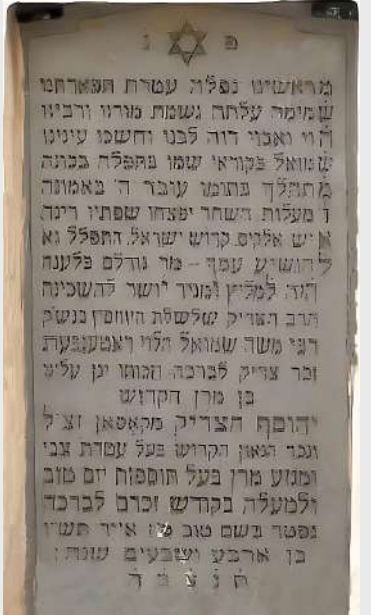 פ נ
מראשינו נפלה עטרת תפארתנו
שמימה עלתה נשמת מורנו ורבינו
הוי ואבוי דוה לבנו וחשכו עינינו
שמואל בקוראי שמו בתפלה בכונה
מתהלך בתומו עובד ה׳ באמונה
מעלות השחר יפצחו שפתיו רינה
איש אלקים קדוש ישראל התפלל נא
להושיע עמך - מר גורלם כלענה
היה למליץ ומגיד יושר להשכינה
הרב הצדיק שלשלת היוחסין בנש״ק
רבי משה שמואל הלוי ראטענבערג
זכר צדיק לברכה זכותו יגן עלינו
בן מרן הקדוש
יהוסף הצדיק מקאסאן זצ״ל
ונכד הגאון הקדוש בעל עטרת צבי
ומגזע מרן בעל תוספות יום טוב
ולמעלה בקודש זכרם לברכה
נפטר בשם טוב אייר
בן ארבע ושבעים שנה
ת נ צ ב ה